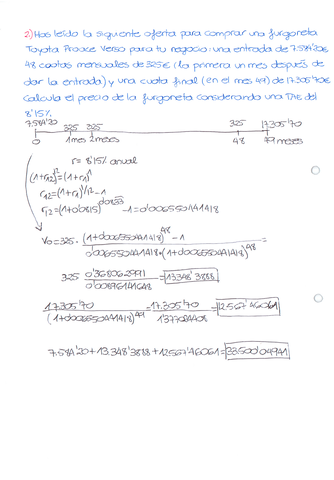 2) Has leído la siguiente oferta para comprar una furgoneta
Toyota Proace Verso para tu negocio: una entrada de 7.584'20€,
48 cuotas mensuales de 325€ (la primera un mes después de
dar la entrada) y una cuota final (en el mes 49) de 17.305'70€
Calcula el precio de la furgoneta considerando una TAE del
8'15%.
7.584'20 325 325 325 17.305'70
0 1mes 2meses 48 49 meses
r = 8'15% anual
(1+r12)^12 = (1+r1)^1
r12 = (1+r1)^1/12 - 1
r12 = (1+0'0815)^0'0833 - 1 = 0'006550441418
V0 = 325 · (1+0'006550441418)^48 - 1 =
0'006550441418 · (1+0'006550441418)^48
325 0'368062991 = 13348'3888
0'00896141648
17.305'70 = 17.305'70 = 12.567'46061
(1+0'006550441418)^49 1'377024408
7.584'20 + 13.348'3888 + 12567'46061 = 33.500'04941